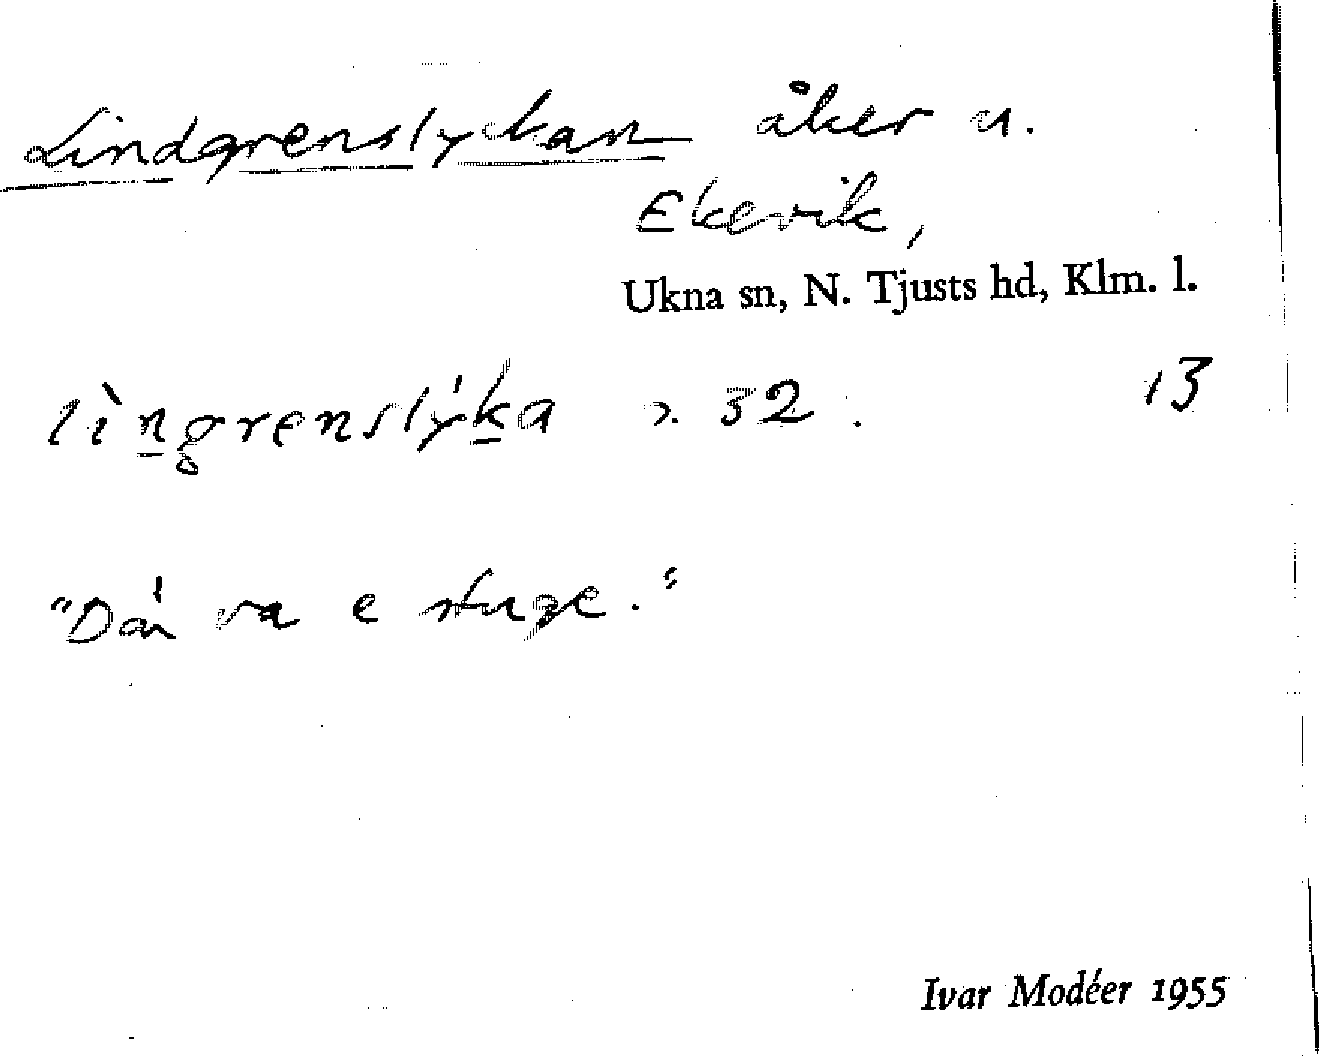 Lindgrenslyckan åker u.
Ekevik,
Ukna sn, N. Tjusts hd, Klm. l.
lìn̲grenslýk̲a 32. 13
"Där va e stuge."
Ivar Modéer 1955